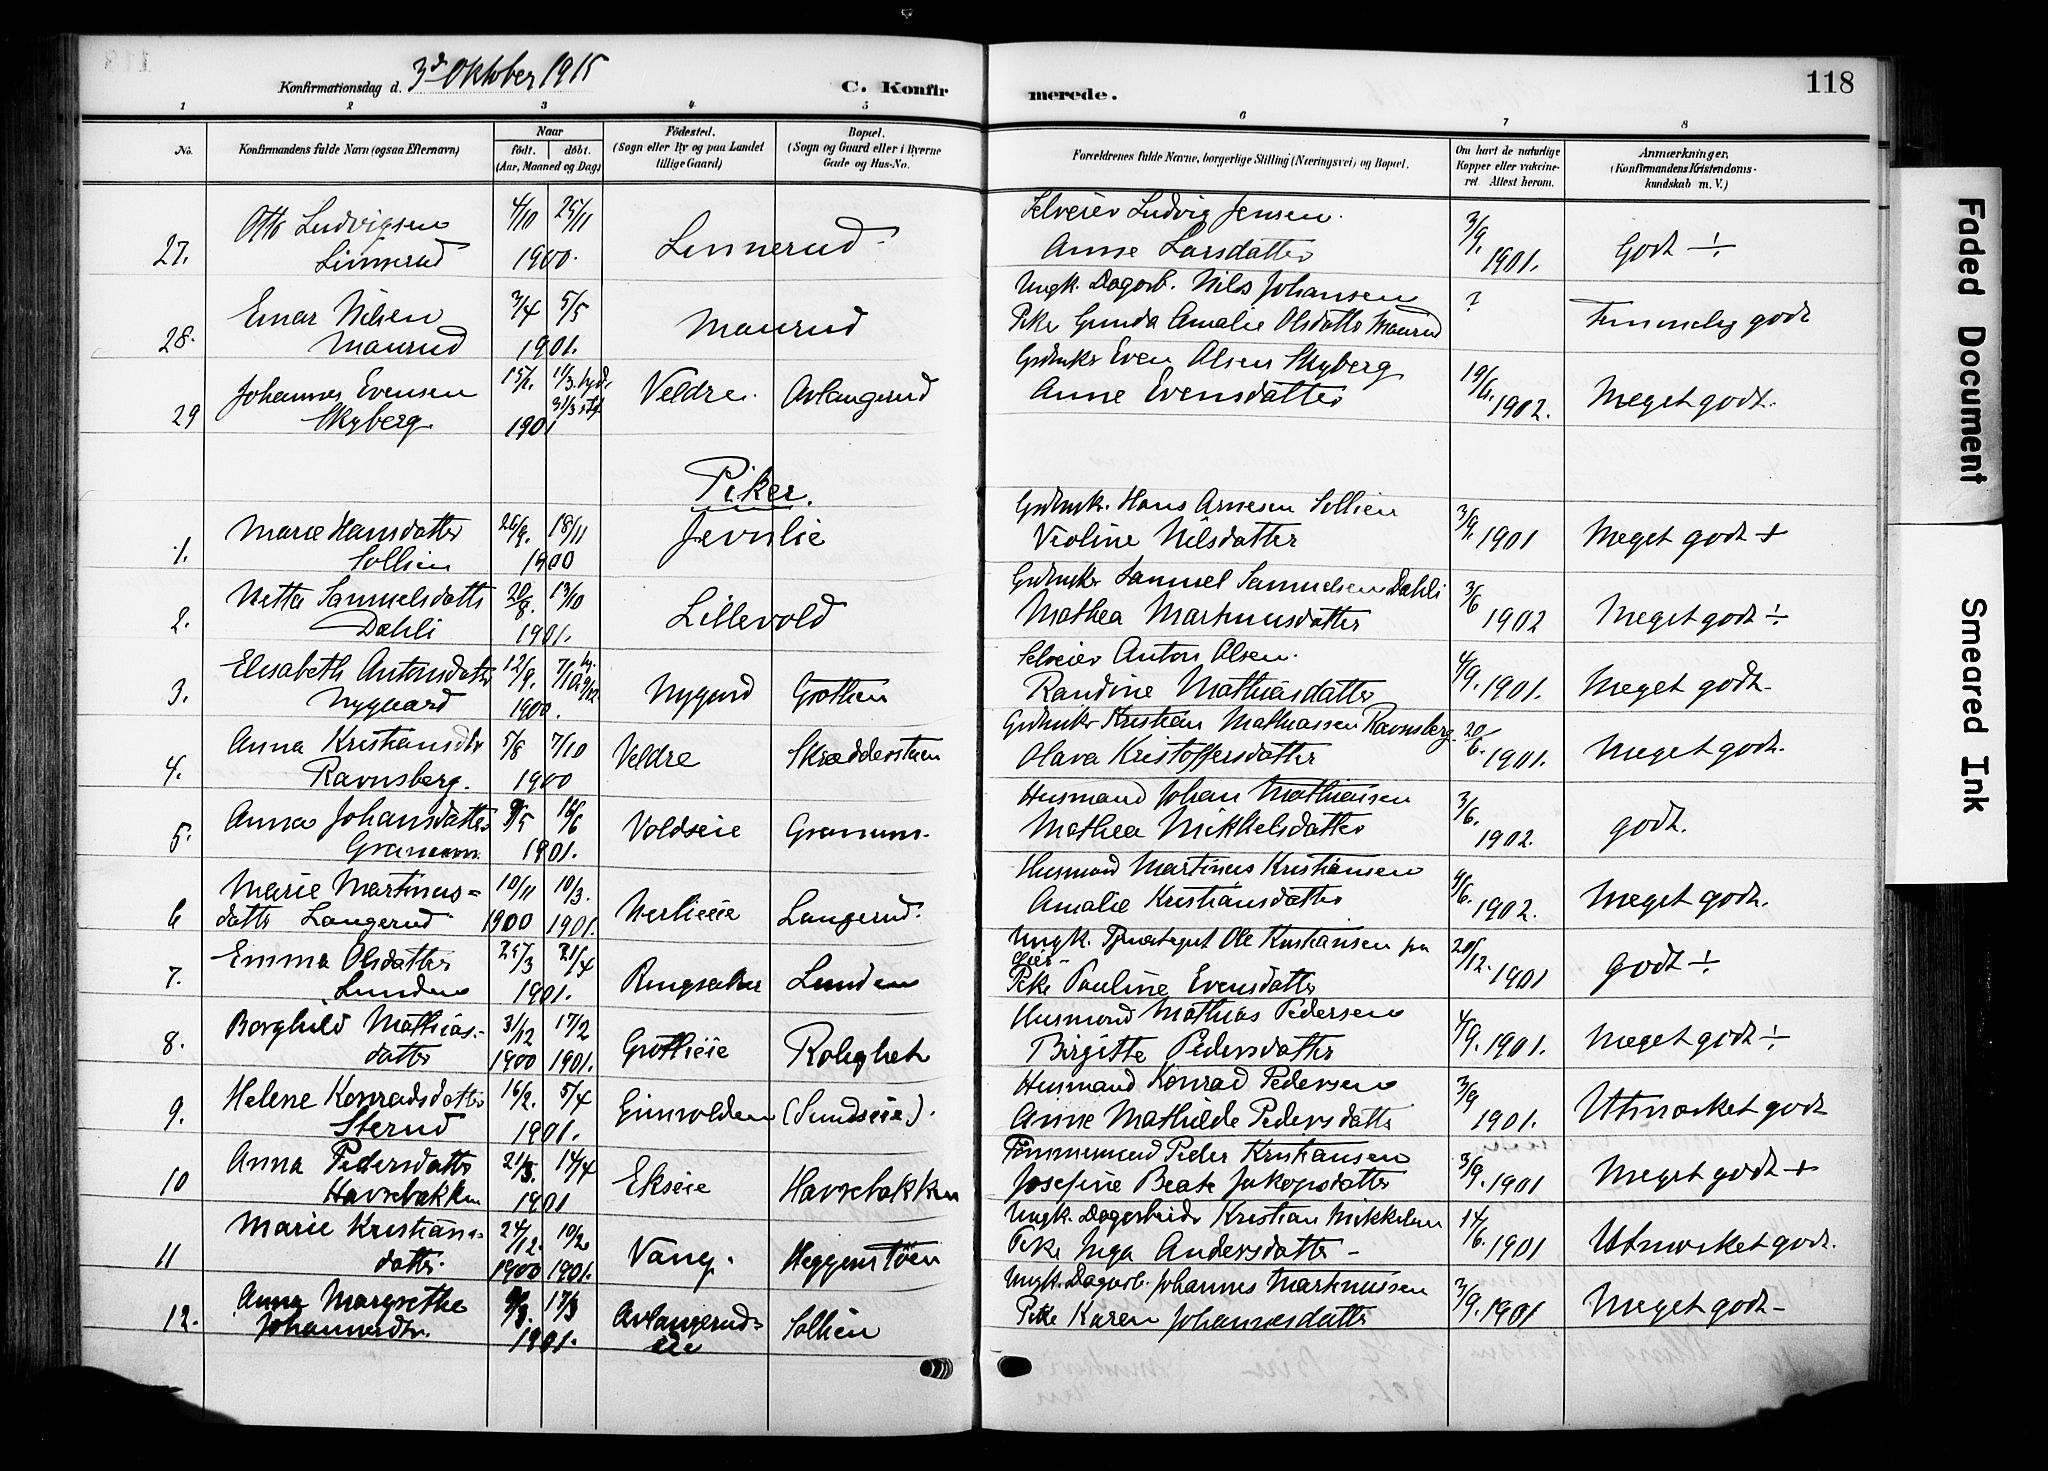 118
Konfirmationsdag d. 3d Oktober 1915
C. Konfirmerede.
1 2 3 4 5 6 7 8
No.
Konfirmandens fulde Navn (ogsaa Efternavn)
Naar
födt. döbt.
(Aar, Maaned og Dag)
Födested.
(Sogn eller By og paa Landet
tillige Gaard)
Bopæl.
(Sogn og Gaard eller i Byerne
Gade og Hus-No.
Forældrenes fulde Navne, borgerlige Stilling (Næringsvei) og Bopæl.
Om havt de naturlige
Kopper eller vakcine-
ret Attest herom.
Anmærkninger.
(Konfirmandens Kristendoms-
kundskab m. V.)
27. Otto Ludvigsen Linnerud 4/10 25/11 1900. Linnerud Selveier Ludvig Jensen. Anne Larsdatter 3/9. 1901. Godt ÷
28. Einar Nilsen Maurud 3/4 5/5 1901. Maurud Ungk. Dagarb. Nils Johansen Pike Gunda Amalie Olsdatter Maurud ? Temmelig godt
29 Johannes Evensen Skyberg 1901 Veldre. Avlangerud Grdbruker Even Olsen Skyberg Anne Evensdatter 19/6. 1902. Meget godt.
Piker.
1. Marie Hansdatter Sollien 26/9. 18/11 1900 Jevnlie Grdbruk. Hans Arnesen Sollien Violine Nilsdatter 3/9. 1901 Meget godt +
2. Netta Samuelsdatter Dahli 20/8. 13/10 1901. Lillevold Grdbruker Samuel Samuelsen Dahli Mathea Martinusdatter 3/6 1902 Meget godt ÷
3. Elisabeth Antonsdatter Nygaard 12/9. 1900. Nygård Grotlien Selveier Anton Olsen. Randine Mathiasdatter 4/9. 1901. Meget godt.
4. Anna Kristiansdtr Ravnsberg. 5/8 7/10 1900 Veldre Skrædderstuen Grdbruker Kristian Mathiassen Ravnsberg. Olava Kristoffersdatter 20/6. 1901. Meget godt.
5. Anna Johansdatter Granum 16/6 1901. Voldseie Granum. Husmand Johan Mathiassen Mathea Mikkelsdatter 3/6. 1902. godt.
6 Marie Martinus=datter Langerud 10/11 1900 10/3. 1901. Nerlieeie Langerud. Husmand Martinus Kristiansen Amalie Kristiansdatter 4/6. 1902. Meget godt.
7. Emma Olsdatter Lunden 25/3 21/4 1901. Ringsaker Lunden Ungk. Tjenestegut Ole Kristiansen pa Pike Pauline Evensdatter 20/12. 1901 godt ÷
8. Borghild Mathiasdatter 31/12 1900 17/2 1901. Grotlieie Rolighet Husmand Mathias Pedersen Birgitte Pedersdatter 4/9. 1901. Meget godt ÷
9. Helene Konradsdatter Sterud 16/2. 5/4 1901. Einvolden (Sundseie). Husmand Konrad Pedersen Anne Mathilde Pedersdatter 3/9 1901. Utmærket godt
10 Anna Pedersdatter Havrebakken 21/3. 14/4 1901 Ekseie Havrebakken Tømmermand Peder Kristiansen Josefine Beate Jakopsdatter 3/9. 1901 Meget godt +
11 Marie Kristiansdatter. 24/12. 1900 10/2 1901. Vang. Heggenstøen Ungk. Dagarbeider Kristian Mikkelsen Pike Inga Andersdatter - 14/6. 1901 Utmærket godt.
12. Anna Margrethe Johannesdtr. 17/3 1901. Avlangerudeie Sollien Ungk. Dagarb. Johannes Martinussen Pike Karen Johannesdatter 3/9. 1901 Meget godt -
Faded Document
Smeared Ink